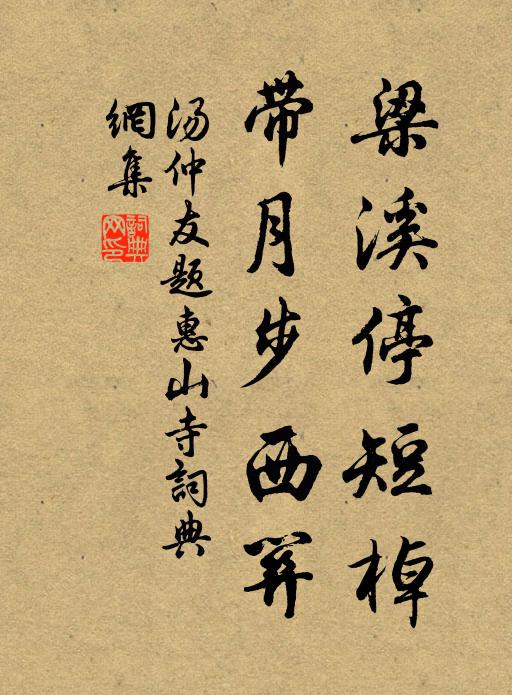 梁溪停短棹
带月步西
汤仲友题惠山寺詞典
網集
詞典
网印